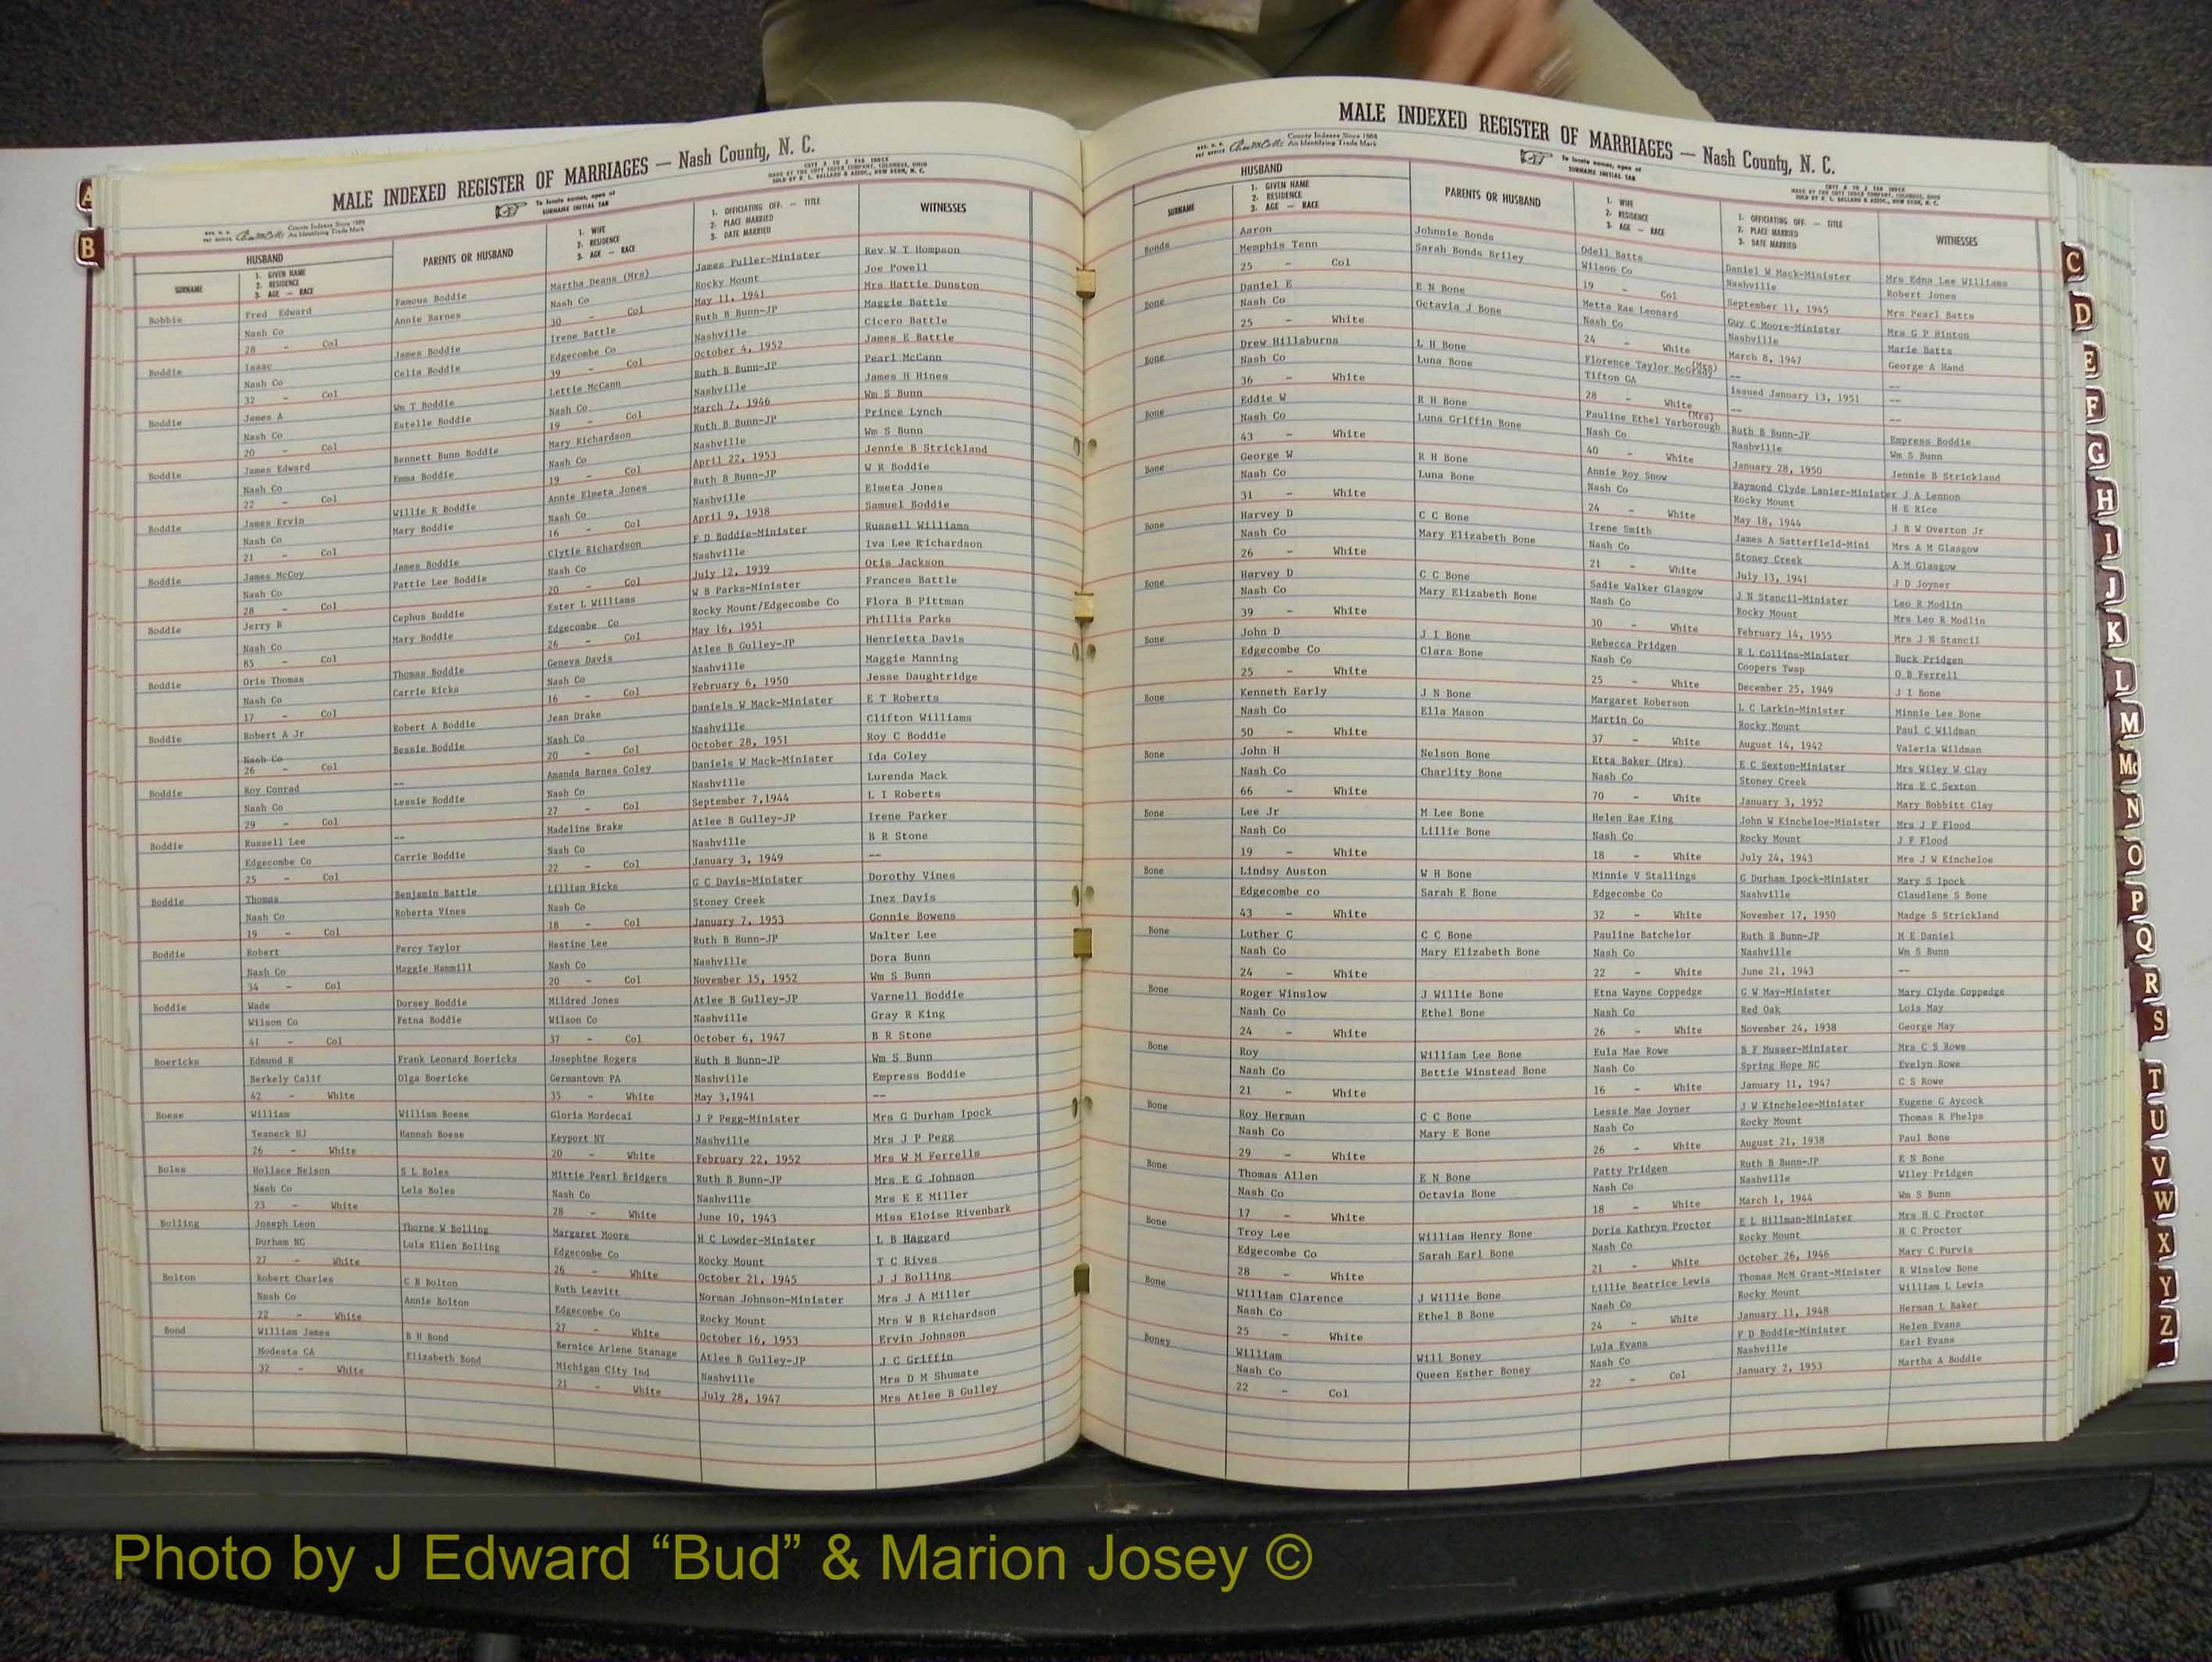 MALE INDEXED REGISTER OF MARRIAGES — Nash County, N. C.
County Indexes Since 1888
An Identifying Trade Mark
To locate names, open at
SURNAME INITIAL TAB
COTT A TO Z TAB INDEX
MADE BY THE COTT INDEX COMPANY, COLUMBUS, OHIO
SOLD BY R. L. BALLARD & ASSOC., NEW BERN, N. C.
HUSBAND
SURNAME 1. GIVEN NAME 2. RESIDENCE 3. AGE — RACE PARENTS OR HUSBAND 1. WIFE 2. RESIDENCE 3. AGE — RACE 1. OFFICIATING OFF. — TITLE 2. PLACE MARRIED 3. DATE MARRIED WITNESSES
Bobbie Fred Edward Famous Boddie Martha Deans (Mrs) James Fuller-Minister Rev W T Hompson
Nash Co Annie Barnes Nash Co Rocky Mount Joe Powell
28 - Col 30 - Col May 11, 1941 Mrs Hattie Dunston
Boddie Isaac James Boddie Irene Battle Ruth B Bunn-JP Maggie Battle
Nash Co Celia Boddie Edgecombe Co Nashville Cicero Battle
32 - Col 39 - Col October 4, 1952 James E Battle
Boddie James A Wm T Boddie Lettie McCann Ruth B Bunn-JP Pearl McCann
Nash Co Estelle Boddie Nash Co Nashville James H Hines
20 - Col 19 - Col March 7, 1946 Wm S Bunn
Boddie James Edward Bennett Bunn Boddie Mary Richardson Ruth B Bunn-JP Prince Lynch
Nash Co Emma Boddie Nash Co Nashville Wm S Bunn
22 - Col 19 - Col April 22, 1953 Jennie B Strickland
Boddie James Ervin Willie R Boddie Annie Elmeta Jones Ruth B Bunn-JP W R Boddie
Nash Co Mary Boddie Nash Co Nashville Elmeta Jones
21 - Col 16 - Col April 9, 1938 Samuel Boddie
Boddie James McCoy James Boddie Clytie Richardson F D Boddie-Minister Russell Williams
Nash Co Pattie Lee Boddie Nash Co Nashville Iva Lee Richardson
28 - Col 20 - Col July 12, 1939 Otis Jackson
Boddie Jerry B Cephus Boddie Ester L Williams W B Parks-Minister Frances Battle
Nash Co Mary Boddie Edgecombe Co Rocky Mount/Edgecombe Co Flora B Pittman
85 - Col 26 - Col May 16, 1951 Phillis Parks
Boddie Oris Thomas Thomas Boddie Geneva Davis Atlee B Gulley-JP Henrietta Davis
Nash Co Carrie Ricks Nash Co Nashville Maggie Manning
17 - Col 16 - Col February 6, 1950 Jesse Daughtridge
Boddie Robert A Jr Robert A Boddie Jean Drake Daniels W Mack-Minister E T Roberts
Nash Co Bessie Boddie Nash Co Nashville Clifton Williams
26 - Col 20 - Col October 28, 1951 Roy C Boddie
Boddie Roy Conrad -- Amanda Barnes Coley Daniels W Mack-Minister Ida Coley
Nash Co Lessie Boddie Nash Co Nashville Lurenda Mack
29 - Col 27 - Col September 7,1944 L I Roberts
Boddie Russell Lee -- Madeline Brake Atlee B Gulley-JP Irene Parker
Edgecombe Co Carrie Boddie Nash Co Nashville B R Stone
25 - Col 22 - Col January 3, 1949 --
Boddie Thomas Benjamin Battle Lillian Ricks G C Davis-Minister Dorothy Vines
Nash Co Roberta Vines Nash Co Stoney Creek Inez Davis
19 - Col 18 - Col January 7, 1953 Gonnie Bowens
Boddie Robert Percy Taylor Hestine Lee Ruth B Bunn-JP Walter Lee
Nash Co Maggie Hammill Nash Co Nashville Dora Bunn
34 - Col 20 - Col November 15, 1952 Wm S Bunn
Boddie Wade Dorsey Boddie Mildred Jones Atlee B Gulley-JP Varnell Boddie
Wilson Co Fetna Boddie Wilson Co Nashville Gray R King
41 - Col 37 - Col October 6, 1947 B R Stone
Boericks Edmund R Frank Leonard Boericks Josephine Rogers Ruth B Bunn-JP Wm S Bunn
Berkely Calif Olga Boericke Germantown PA Nashville Empress Boddie
42 - White 35 - White May 3,1941 --
Boese William William Boese Gloria Mordecai J P Pegg-Minister Mrs G Durham Ipock
Teaneck NJ Hannah Boese Keyport NY Nashville Mrs J P Pegg
26 - White 20 - White February 22, 1952 Mrs W M Ferrells
Boles Hollace Nelson S L Boles Mittie Pearl Bridgers Ruth B Bunn-JP Mrs E G Johnson
Nash Co Lela Boles Nash Co Nashville Mrs E E Miller
23 - White 28 - White June 10, 1943 Miss Eloise Rivenbark
Bolling Joseph Leon Thorne W Bolling Margaret Moore H C Lowder-Minister L B Haggard
Durham NC Lula Ellen Bolling Edgecombe Co Rocky Mount T C Rives
27 - White 26 - White October 21, 1945 J J Bolling
Bolton Robert Charles C B Bolton Ruth Leavitt Norman Johnson-Minister Mrs J A Miller
Nash Co Annie Bolton Edgecombe Co Rocky Mount Mrs W B Richardson
22 - White 27 - White October 16, 1953 Ervin Johnson
Bond William James B H Bond Bernice Arlene Stanage Atlee B Gulley-JP J C Griffin
Modesta CA Elizabeth Bond Michigan City Ind Nashville Mrs D M Shumate
32 - White 21 - White July 28, 1947 Mrs Atlee B Gulley
MALE INDEXED REGISTER OF MARRIAGES — Nash County, N. C.
County Indexes Since 1888
An Identifying Trade Mark
To locate names, open at
SURNAME INITIAL TAB
COTT A TO Z TAB INDEX
MADE BY THE COTT INDEX COMPANY, COLUMBUS, OHIO
SOLD BY R. L. BALLARD & ASSOC., NEW BERN, N. C.
HUSBAND
SURNAME 1. GIVEN NAME 2. RESIDENCE 3. AGE — RACE PARENTS OR HUSBAND 1. WIFE 2. RESIDENCE 3. AGE — RACE 1. OFFICIATING OFF. — TITLE 2. PLACE MARRIED 3. DATE MARRIED WITNESSES
Bonds Aaron Johnnie Bonds Odell Batts Daniel W Mack-Minister Mrs Edna Lee Williams
Memphis Tenn Sarah Bonds Briley Wilson Co Nashville Robert Jones
25 - Col 19 - Col September 11, 1945 Mrs Pearl Batts
Bone Daniel E E N Bone Metta Rae Leonard Guy C Moore-Minister Mrs G P Hinton
Nash Co Octavia J Bone Nash Co Nashville Marie Batts
25 - White 24 - White March 8, 1947 George A Hand
Bone Drew Hillsburns L H Bone Florence Taylor McGrady (Mrs) -- --
Nash Co Luna Bone Tifton GA -- --
36 - White 28 - White Issued January 13, 1951 --
Bone Eddie W R H Bone Pauline Ethel Yarborough (Mrs) Ruth B Bunn-JP Empress Boddie
Nash Co Luna Griffin Bone Nash Co Nashville Wm S Bunn
43 - White 40 - White January 28, 1950 Jennie B Strickland
Bone George W R H Bone Annie Roy Snow Raymond Clyde Lanier-Minister J A Lennon
Nash Co Luna Bone Nash Co Rocky Mount H E Rice
31 - White 24 - White May 18, 1944 J B W Overton Jr
Bone Harvey D C C Bone Irene Smith James A Satterfield-Mini Mrs A M Glasgow
Nash Co Mary Elizabeth Bone Nash Co Stoney Creek A M Glasgow
26 - White 21 - White July 13, 1941 J D Joyner
Bone Harvey D C C Bone Sadie Walker Glasgow J N Stancil-Minister Leo R Modlin
Nash Co Mary Elizabeth Bone Nash Co Rocky Mount Mrs Leo R Modlin
39 - White 30 - White February 14, 1955 Mrs J N Stancil
Bone John D J I Bone Rebecca Pridgen R L Collins-Minister Buck Pridgen
Edgecombe Co Clara Bone Nash Co Coopers Twsp O B Ferrell
25 - White 25 - White December 25, 1949 J I Bone
Bone Kenneth Early J N Bone Margaret Roberson L C Larkin-Minister Minnie Lee Bone
Nash Co Ella Mason Martin Co Rocky Mount Paul C Wildman
50 - White 37 - White August 14, 1942 Valeria Wildman
Bone John H Nelson Bone Etta Baker (Mrs) E C Sexton-Minister Mrs Wiley W Clay
Nash Co Charlity Bone Nash Co Stoney Creek Mrs E C Sexton
66 - White 70 - White January 3, 1952 Mary Bobbitt Clay
Bone Lee Jr M Lee Bone Helen Rae King John W Kincheloe-Minister Mrs J F Flood
Nash Co Lillie Bone Nash Co Rocky Mount J F Flood
19 - White 18 - White July 24, 1943 Mrs J W Kincheloe
Bone Lindsy Auston W H Bone Minnie V Stallings G Durham Ipock-Minister Mary S Ipock
Edgecombe co Sarah E Bone Edgecombe Co Nashville Claudlene S Bone
43 - White 32 - White November 17, 1950 Madge S Strickland
Bone Luther C C C Bone Pauline Batchelor Ruth B Bunn-JP M E Daniel
Nash Co Mary Elizabeth Bone Nash Co Nashville Wm S Bunn
24 - White 22 - White June 21, 1943 --
Bone Roger Winslow J Willie Bone Etna Wayne Coppedge G W May-Minister Mary Clyde Coppedge
Nash Co Ethel Bone Nash Co Red Oak Lois May
24 - White 26 - White November 24, 1938 George May
Bone Roy William Lee Bone Eula Mae Rowe B F Musser-Minister Mrs C S Rowe
Nash Co Bettie Winstead Bone Nash Co Spring Hope NC Evelyn Rowe
21 - White 16 - White January 11, 1947 C S Rowe
Bone Roy Herman C C Bone Lessie Mae Joyner J W Kincheloe-Minister Eugene G Aycock
Nash Co Mary E Bone Nash Co Rocky Mount Thomas R Phelps
29 - White 26 - White August 21, 1938 Paul Bone
Bone Thomas Allen E N Bone Patty Pridgen Ruth B Bunn-JP E N Bone
Nash Co Octavia Bone Nash Co Nashville Wiley Pridgen
17 - White 18 - White March 1, 1944 Wm S Bunn
Bone Troy Lee William Henry Bone Doris Kathryn Proctor E L Hillman-Minister Mrs H C Proctor
Edgecombe Co Sarah Earl Bone Nash Co Rocky Mount H C Proctor
28 - White 21 - White October 26, 1946 Mary C Purvis
Bone William Clarence J Willie Bone Lillie Beatrice Lewis Thomas McM Grant-Minister R Winslow Bone
Nash Co Ethel B Bone Nash Co Rocky Mount William L Lewis
25 - White 24 - White January 11, 1948 Herman L Baker
Boney William Will Boney Lula Evans F D Boddie-Minister Helen Evans
Nash Co Queen Esther Boney Nash Co Nashville Earl Evans
22 - Col 22 - Col January 2, 1953 Martha A Boddie
A
B
C
D
E
F
G
H
I
J
K
L
M
Mc
N
O
P
Q
R
S
T
U
V
W
X
Y
Z
Photo by J Edward “Bud” & Marion Josey ©